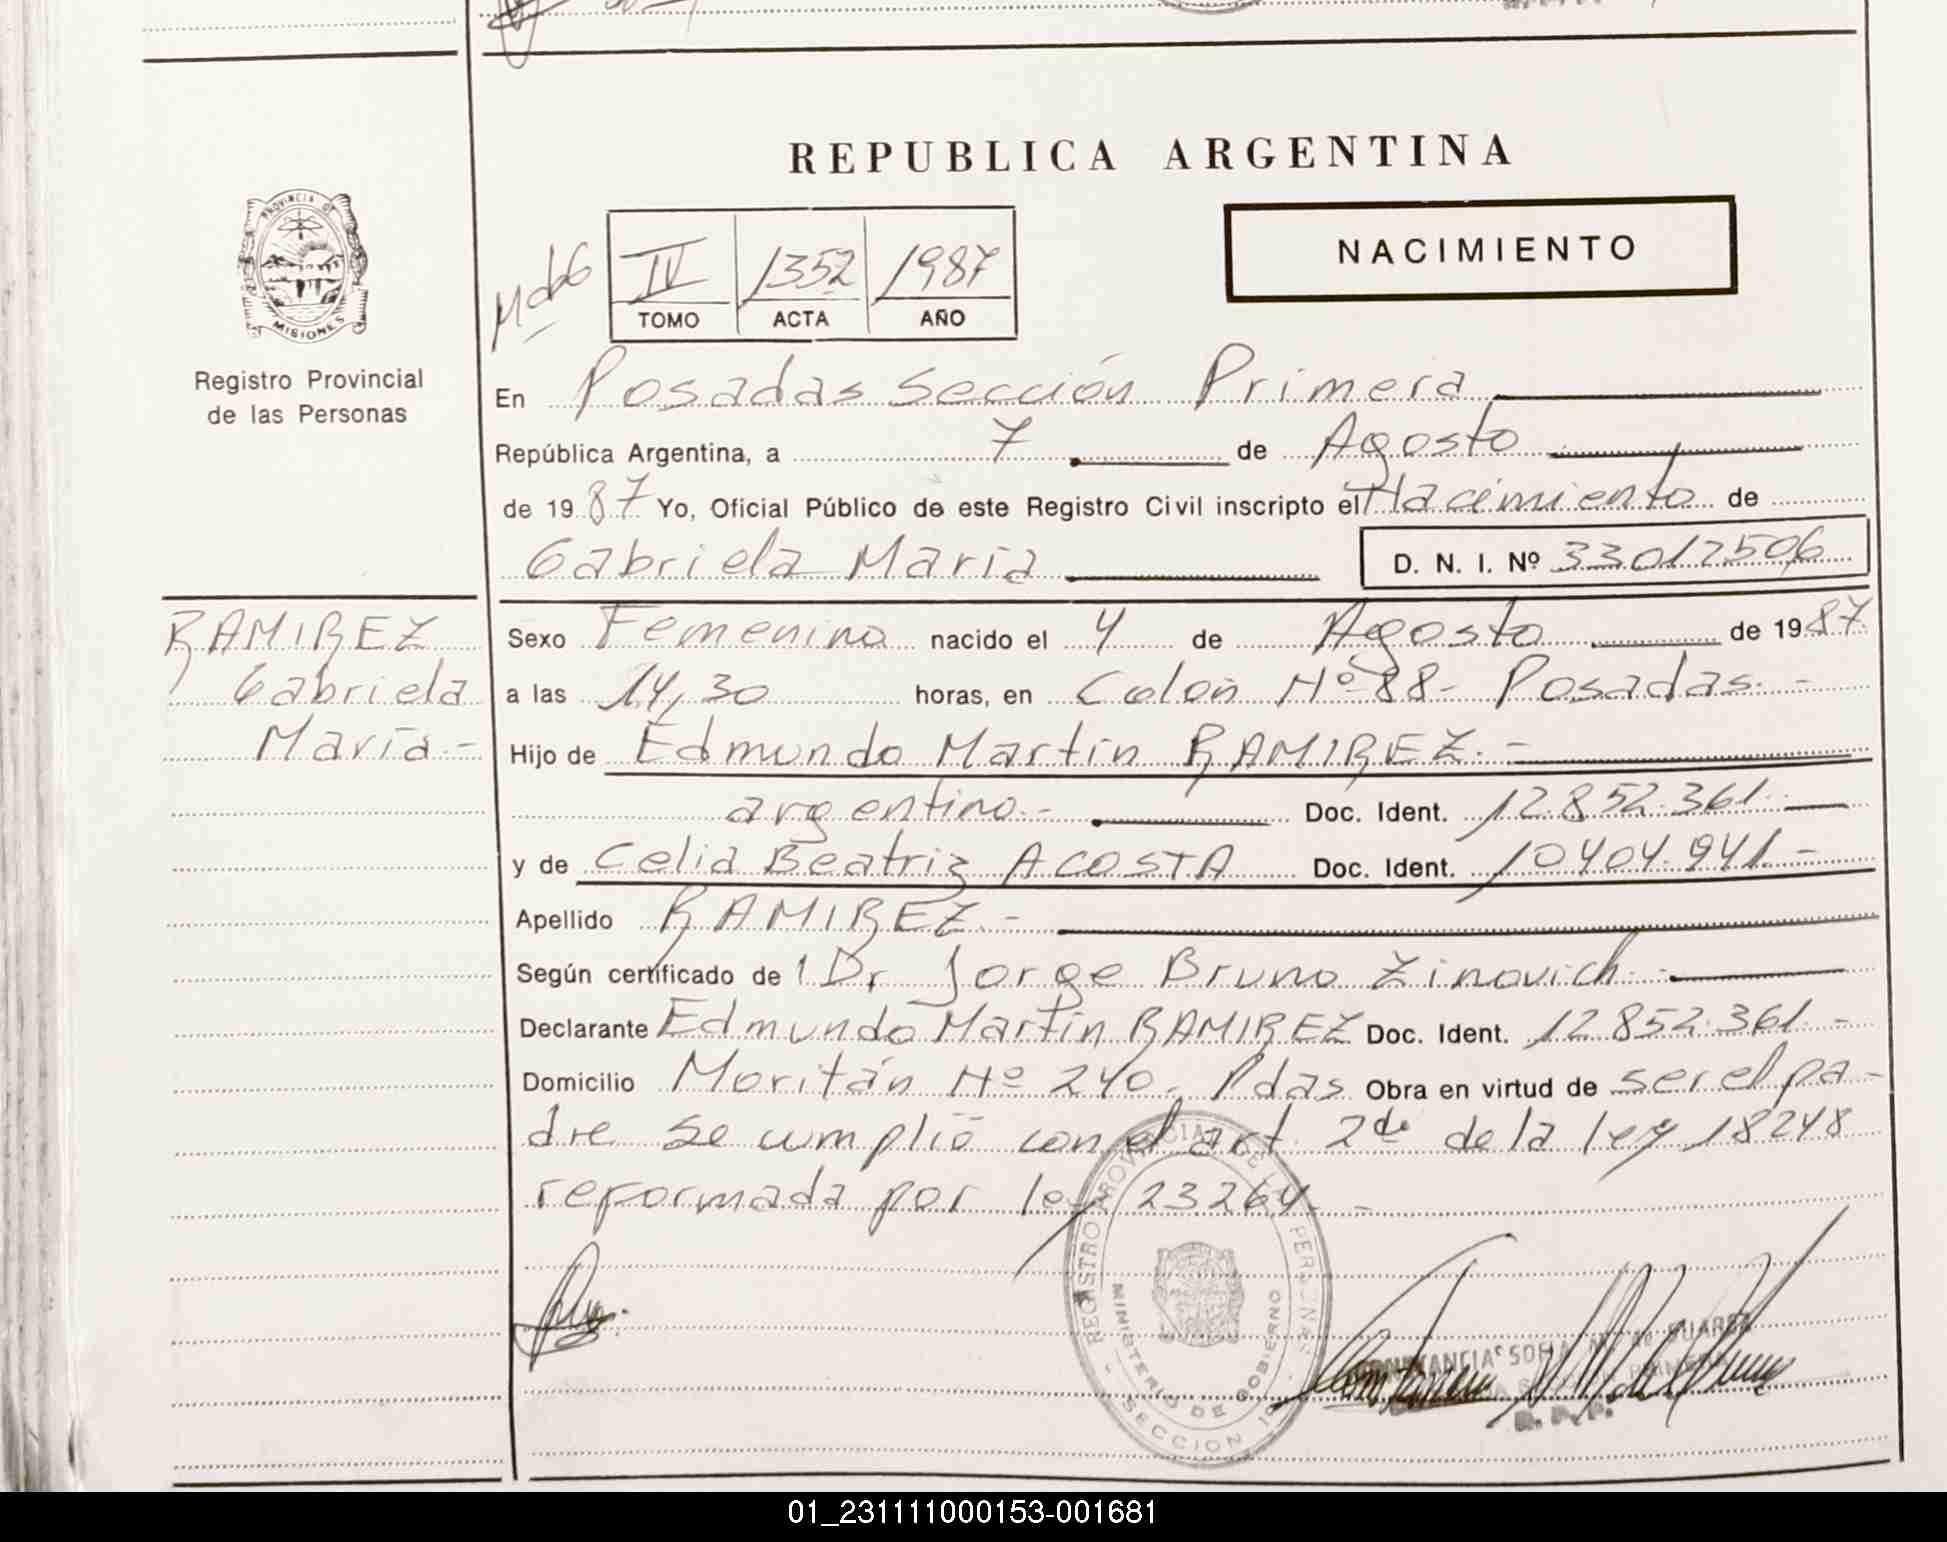 REPUBLICA ARGENTINA
NACIMIENTO
PROVINCIA DE
MISIONES
Registro Provincial
de las Personas
IV 1352 1987
TOMO ACTA AÑO
En Posadas Sección Primera
República Argentina, a 7 de Agosto
de 1987 Yo, Oficial Público de este Registro Civil inscripto el Nacimiento de
Gabriela María D. N. I. Nº 33012506
RAMIREZ
Gabriela
María.-
Sexo Femenino nacido el 4 de Agosto de 1987
a las 14,30 horas, en Colón Nº 88- Posadas.-
Hijo de Edmundo Martín RAMIREZ.-
argentino.- Doc. Ident. 12.852.361-
y de Celia Beatriz ACOSTA Doc. Ident. 10404.941.-
Apellido RAMIREZ.-
Según certificado de l Dr Jorge Bruno Zinovich.-
Declarante Edmundo Martín RAMIREZ Doc. Ident. 12.852.361.-
Domicilio Moritán Nº 240. Pdas Obra en virtud de ser el pa-
dre se cumplió con el art. 2do de la ley 18248
reformada por ley 23264.-
REGISTRO PROVINCIAL DE LAS PERSONAS
MINISTERIO DE GOBIERNO
SECCION 1
CONSTANCIA SOFIA M. de SUAREZ
R. P. P.
01_231111000153-001681